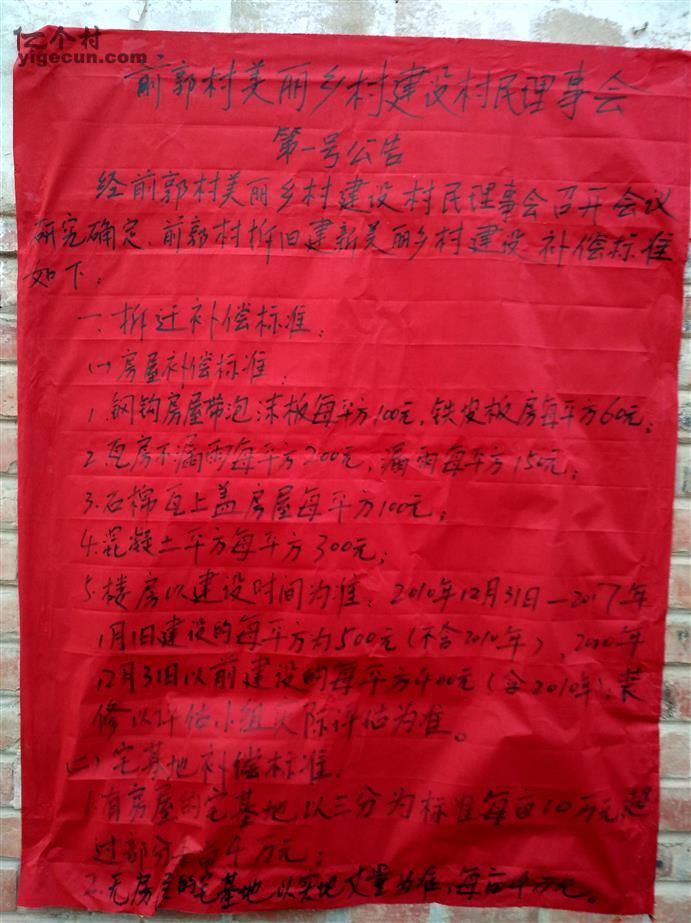 亿个村
yigecun.com
前郭村美丽乡村建设村民理事会
第一号公告
经前郭村美丽乡村建设村民理事会召开会议
研究确定,前郭村拆旧建新美丽乡村建设补偿标准
如下:
一、拆迁补偿标准:
(一)房屋补偿标准:
1.钢钩房屋带泡沫板每平方100元,铁皮板房每平方60元;
2.瓦房不漏雨每平方200元,漏雨每平方150元;
3.石棉瓦上盖房屋每平方100元;
4.混凝土平方每平方300元;
5.楼房以建设时间为准:2010年12月31日—2017年
1月1日建设的每平方为500元(不含2010年),2010年
12月31日以前建设的每平方400元(含2010年),装
修以评估小组实际评估为准。
(二)宅基地补偿标准:
1.有房屋的宅基地以三分为标准每亩10万元,超
过部分每亩4万元;
2.无房屋的宅基地以实地丈量为准,每亩4万元。